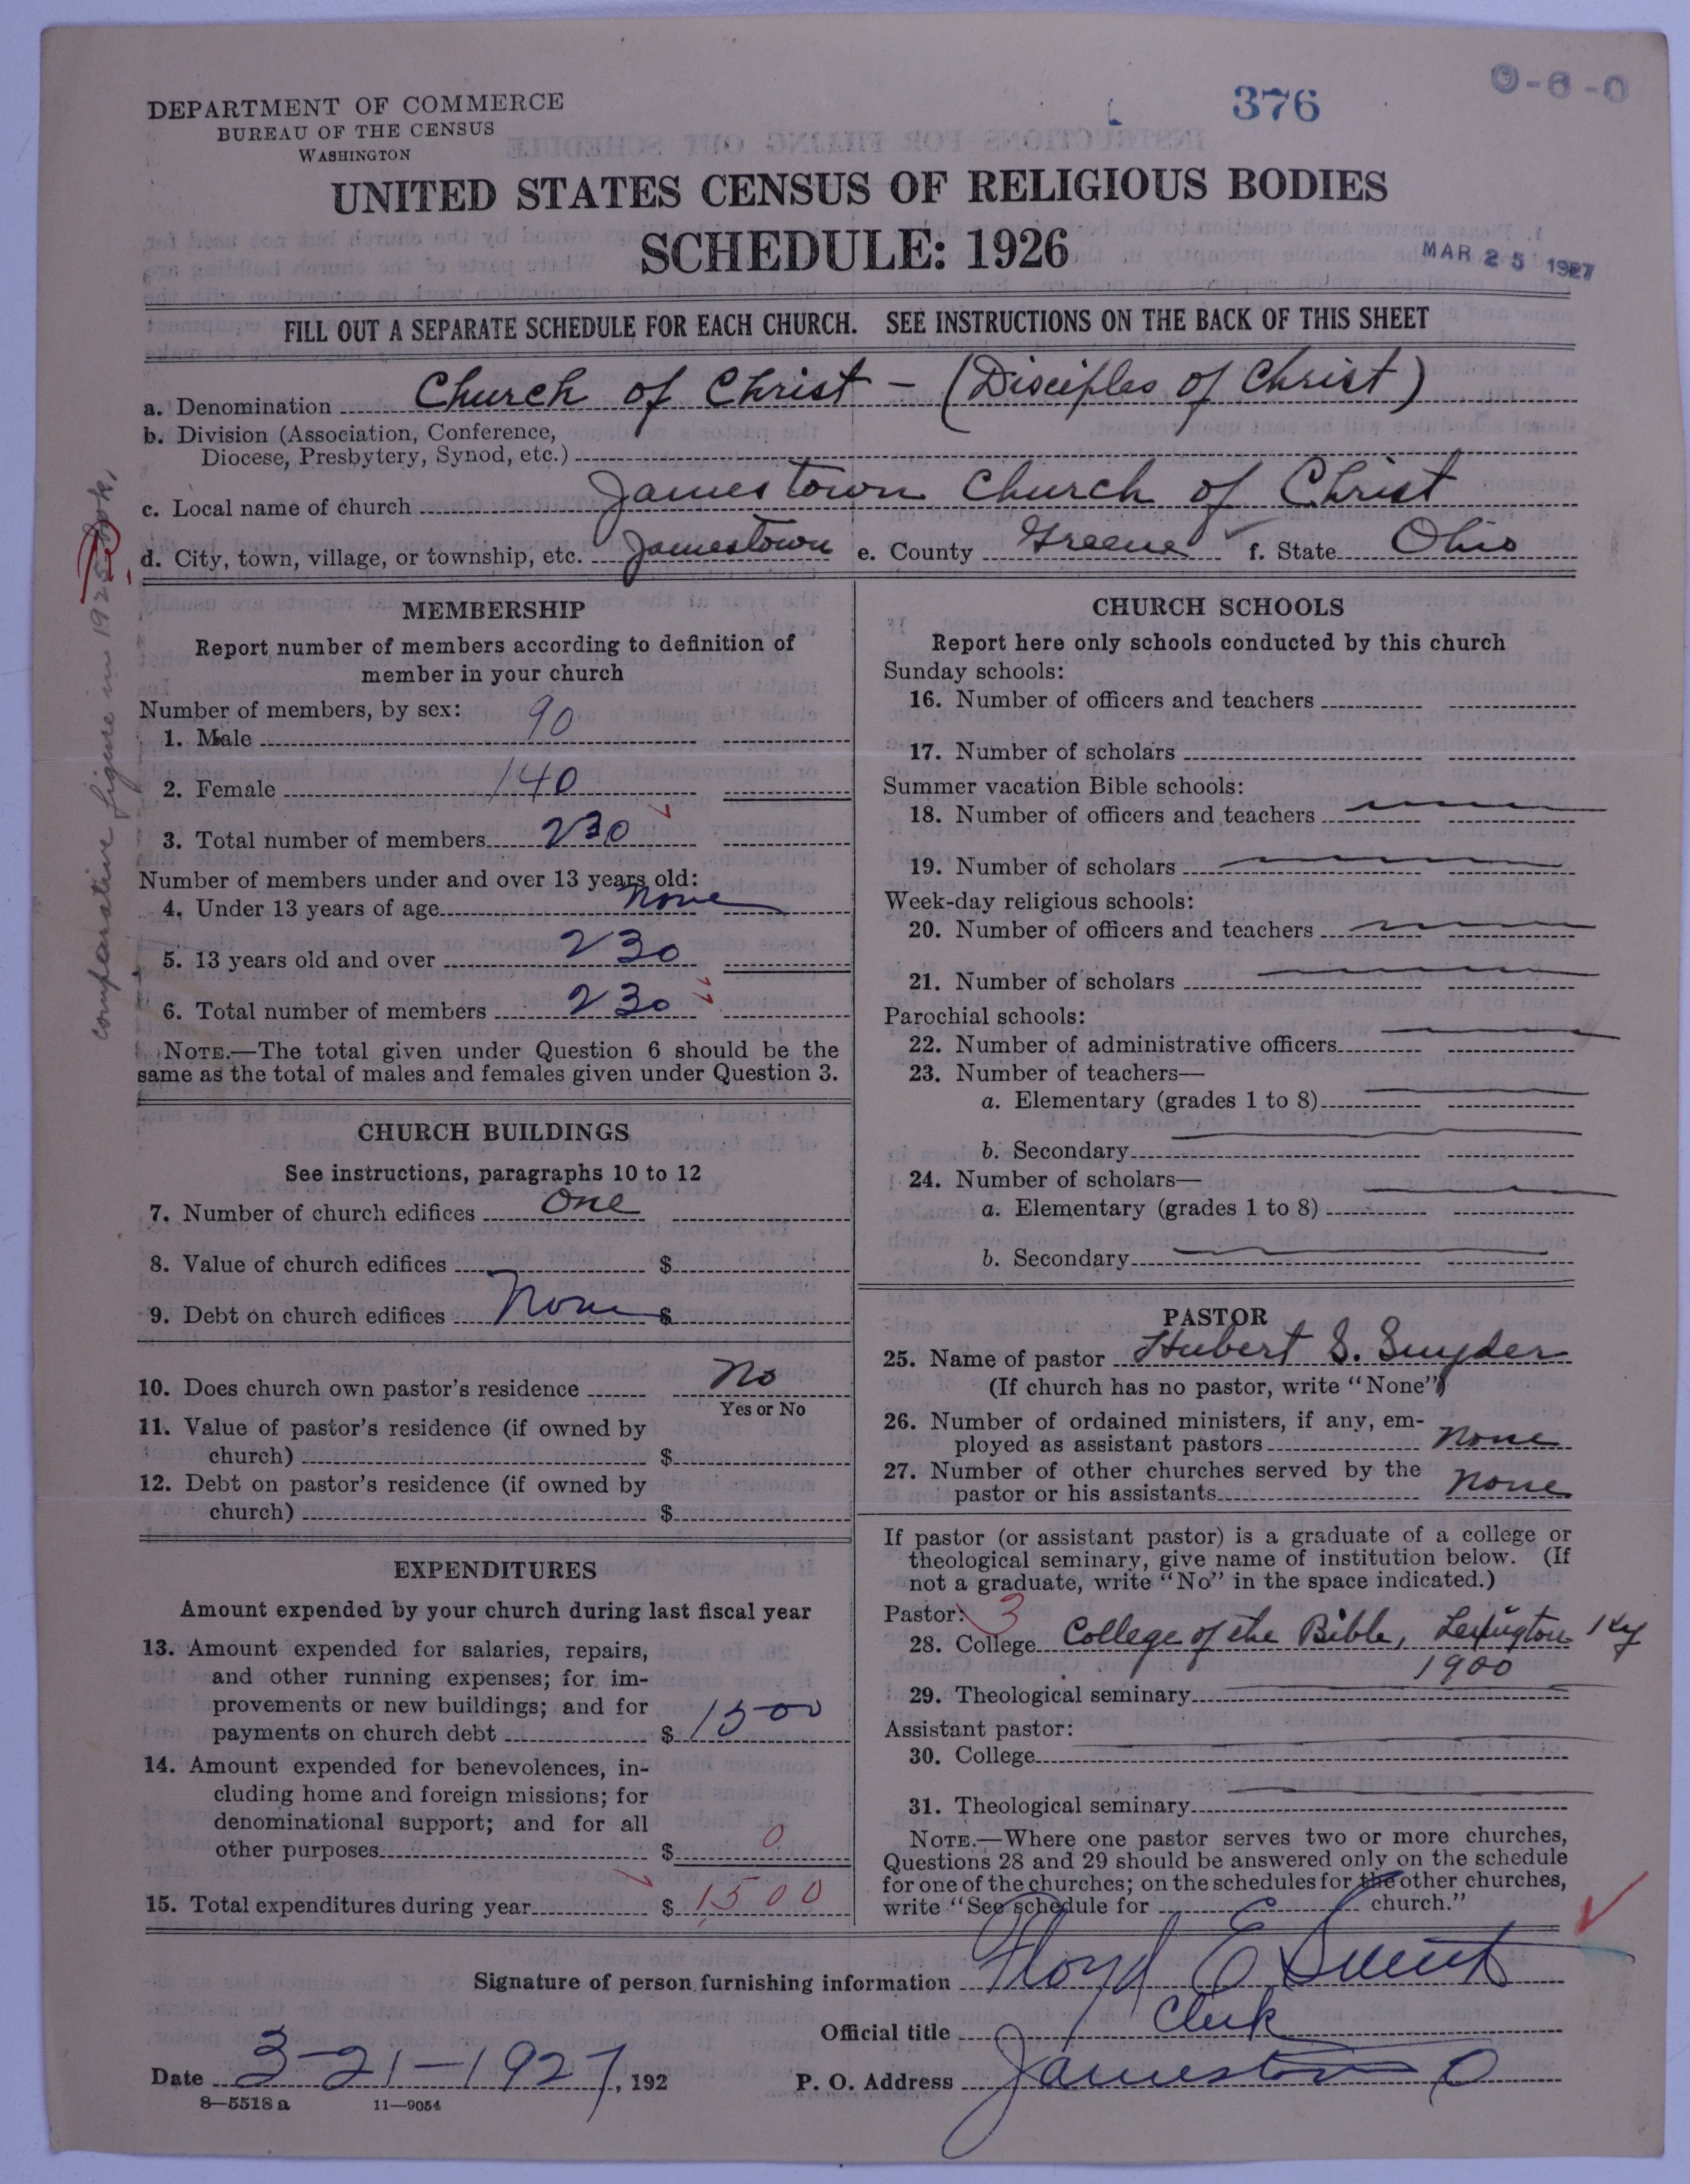 0-6-0
376
DEPARTMENT OF COMMERCE
BUREAU OF THE CENSUS
WASHINGTON
UNITED STATES CENSUS OF RELIGIOUS BODIES
SCHEDULE: 1926
MAR 25 1927
FILL OUT A SEPARATE SCHEDULE FOR EACH CHURCH. SEE INSTRUCTIONS ON THE BACK OF THIS SHEET
a. Denomination Church of Christ - (Disciples of Christ)
b. Division (Association, Conference,
Diocese, Presbytery, Synod, etc.)
c. Local name of church Jamestown Church of Christ
d. City, town, village, or township, etc. Jamestown e. County Greene f. State Ohio
comparative figure in 1925
MEMBERSHIP
Report number of members according to definition of
member in your church
Number of members, by sex:
1. Male 90
2. Female 140
3. Total number of members 230
Number of members under and over 13 years old:
4. Under 13 years of age None
5. 13 years old and over 230
6. Total number of members 230
NOTE.—The total given under Question 6 should be the
same as the total of males and females given under Question 3.
CHURCH BUILDINGS
See instructions, paragraphs 10 to 12
7. Number of church edifices One
8. Value of church edifices $
9. Debt on church edifices None $
10. Does church own pastor's residence No
Yes or No
11. Value of pastor's residence (if owned by
church) $
12. Debt on pastor's residence (if owned by
church) $
EXPENDITURES
Amount expended by your church during last fiscal year
13. Amount expended for salaries, repairs,
and other running expenses; for im-
provements or new buildings; and for
payments on church debt $ 1500
14. Amount expended for benevolences, in-
cluding home and foreign missions; for
denominational support; and for all
other purposes $ 0
15. Total expenditures during year $ 1500
CHURCH SCHOOLS
Report here only schools conducted by this church
Sunday schools:
16. Number of officers and teachers
17. Number of scholars
Summer vacation Bible schools:
18. Number of officers and teachers
19. Number of scholars
Week-day religious schools:
20. Number of officers and teachers
21. Number of scholars
Parochial schools:
22. Number of administrative officers
23. Number of teachers—
a. Elementary (grades 1 to 8)
b. Secondary
24. Number of scholars—
a. Elementary (grades 1 to 8)
b. Secondary
PASTOR
25. Name of pastor Hubert S. Snyder
(If church has no pastor, write "None")
26. Number of ordained ministers, if any, em-
ployed as assistant pastors None
27. Number of other churches served by the
pastor or his assistants None
If pastor (or assistant pastor) is a graduate of a college or
theological seminary, give name of institution below. (If
not a graduate, write "No" in the space indicated.)
Pastor: 3
28. College College of the Bible, Lexington Ky
1900
29. Theological seminary
Assistant pastor:
30. College
31. Theological seminary
NOTE.—Where one pastor serves two or more churches,
Questions 28 and 29 should be answered only on the schedule
for one of the churches; on the schedules for the other churches,
write "See schedule for church."
Signature of person furnishing information Floyd E
Official title Clerk
Date 3-21-1927, 192 P. O. Address Jamestown O
8—5518 a 11—9054